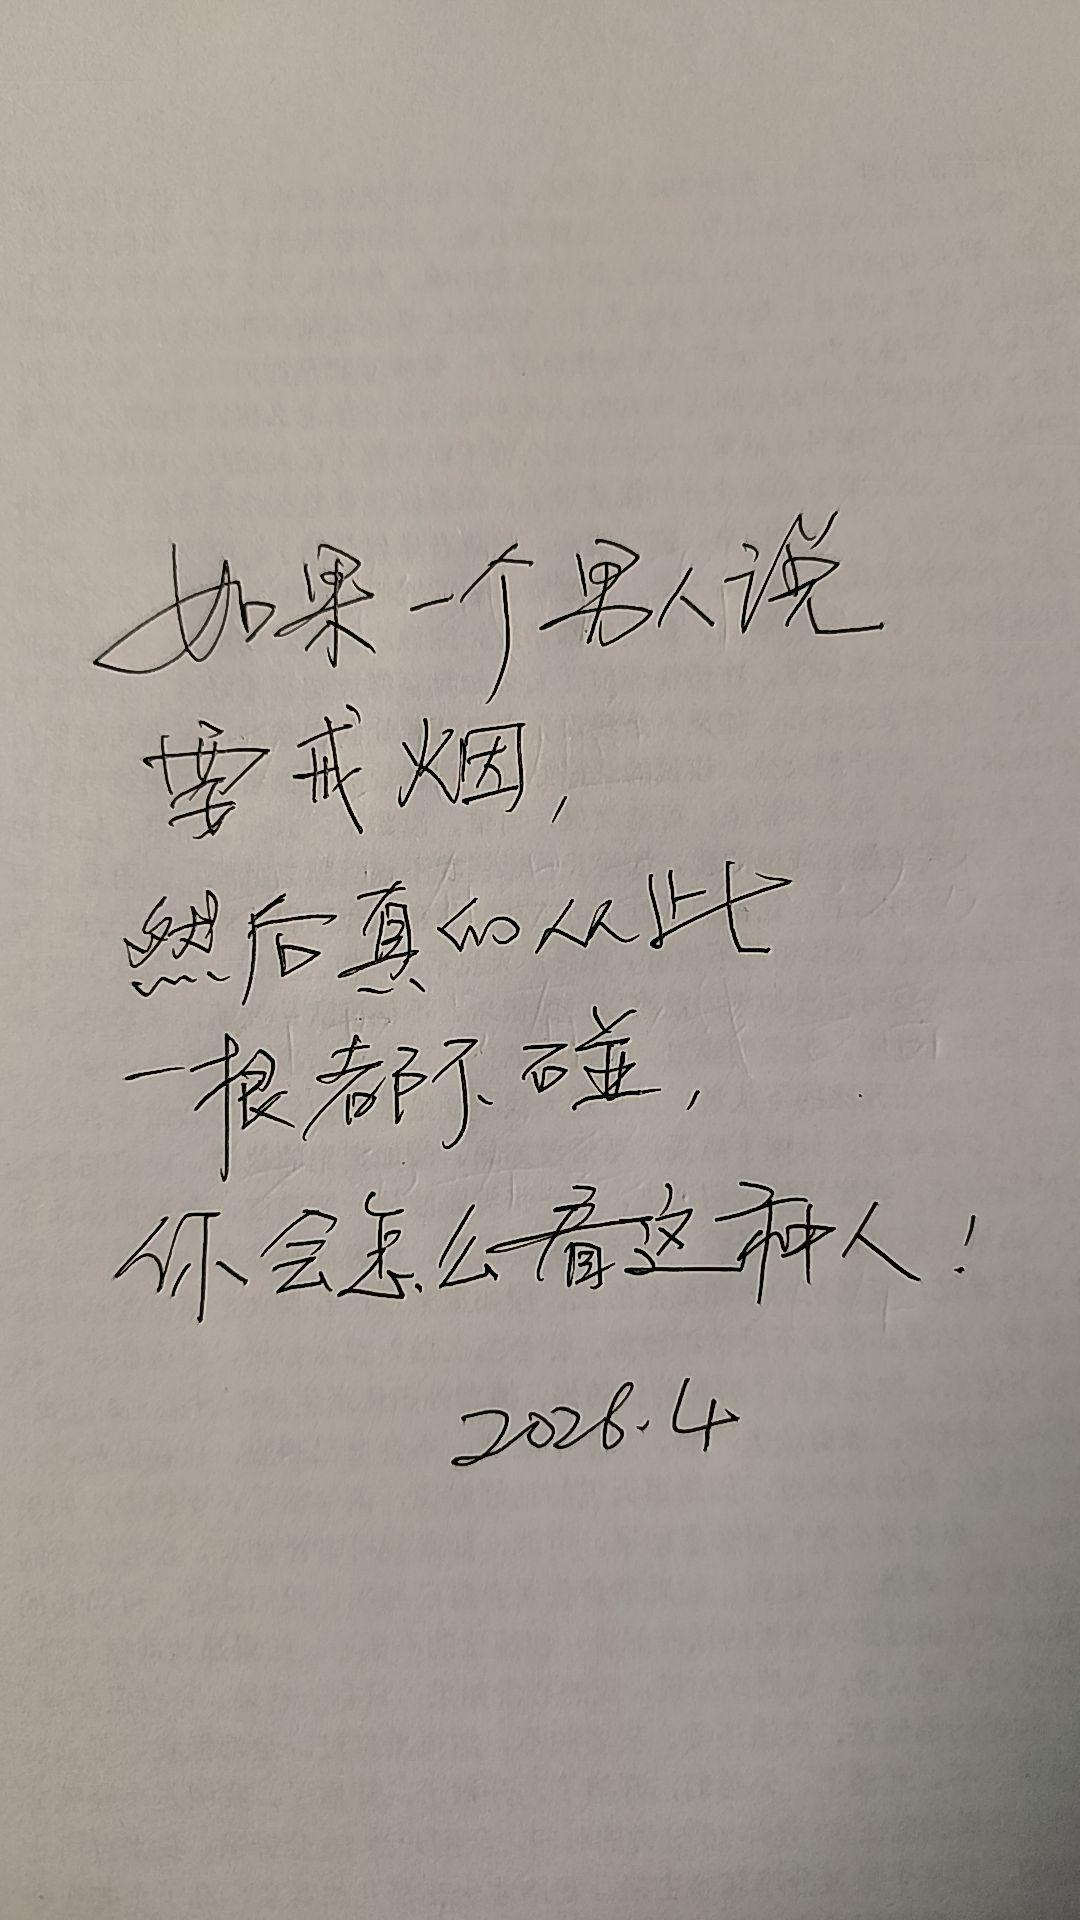 如果一个男人说
要戒烟,
然后真的从此
一根都不碰,
你会怎么看这种人!
2026.4